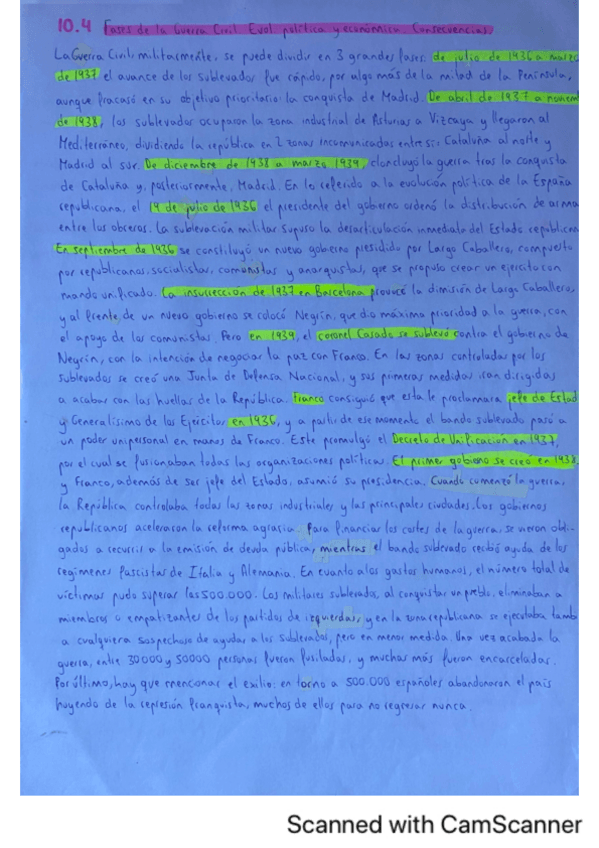 10.4 Fases de la Guerra Civil. Evol. política y económica. Consecuencias.
La Guerra Civil, militarmente, se puede dividir en 3 grandes fases: de julio de 1936 a marzo
de 1937 el avance de los sublevados fue rápido, por algo más de la mitad de la Península,
aunque fracasó en su objetivo prioritario: la conquista de Madrid. De abril de 1937 a noviem
de 1938, los sublevados ocuparon la zona industrial de Asturias a Vizcaya y llegaron al
Mediterráneo, dividiendo la república en 2 zonas incomunicadas entre sí: Cataluña al norte y
Madrid al sur. De diciembre de 1938 a marzo 1939, concluyó la guerra tras la conquista
de Cataluña y, posteriormente, Madrid. En lo referido a la evolución política de la España
republicana, el 19 de julio de 1936 el presidente del gobierno ordenó la distribución de arma
entre los obreros. La sublevación militar supuso la desarticulación inmediata del Estado republican
En septiembre de 1936 se constituyó un nuevo gobierno presidido por Largo Caballero, compuesto
por republicanos, socialistas, comunistas y anarquistas, que se propuso crear un ejercito con
mando unificado. La insurrección de 1937 en Barcelona provocó la dimisión de Largo Caballero,
y al frente de un nuevo gobierno se colocó Negrín, que dio máxima prioridad a la guerra, con
el apoyo de los comunistas. Pero en 1939, el coronel Casado se sublevó contra el gobierno de
Negrín, con la intención de negociar la paz con Franco. En las zonas controladas por los
sublevados se creó una Junta de Defensa Nacional, y sus primeras medidas iran dirigidas
a acabar con las huellas de la República. Franco consiguió que esta le proclamara jefe de Estad
y Generalísimo de los Ejércitos en 1936, y a partir de ese momento el bando sublevado pasó a
un poder unipersonal en manos de Franco. Este promulgó el Decreto de Unificación en 1937,
por el cual se fusionaban todas las organizaciones políticas. El primer gobierno se creó en 1938
y Franco, además de ser jefe del Estado, asumió su presidencia. Cuando comenzó la guerra,
la República controlaba todas las zonas industriales y las principales ciudades. Los gobiernos
republicanos aceleraron la reforma agraria. Para financiar los costes de la guerra, se vieron obli-
gados a recurrir a la emisión de deuda pública, mientras el bando sublevado recibió ayuda de los
regímenes fascistas de Italia y Alemania. En cuanto a los gastos humanos, el número total de
víctimas pudo superar las 500.000. Los militares sublevados, al conquistar un pueblo, eliminaban a
miembros o empatizantes de los partidos de izquierdas, y en la zona republicana se ejecutaba tamb
a cualquiera sospechoso de ayudar a los sublevados, pero en menor medida. Una vez acabada la
guerra, entre 30000 y 50000 personas fueron fusiladas, y muchas más fueron encarceladas.
Por último, hay que mencionar el exilio: en torno a 500.000 españoles abandonaron el país
huyendo de la represión franquista, muchos de ellos para no regresar nunca.
Scanned with CamScanner